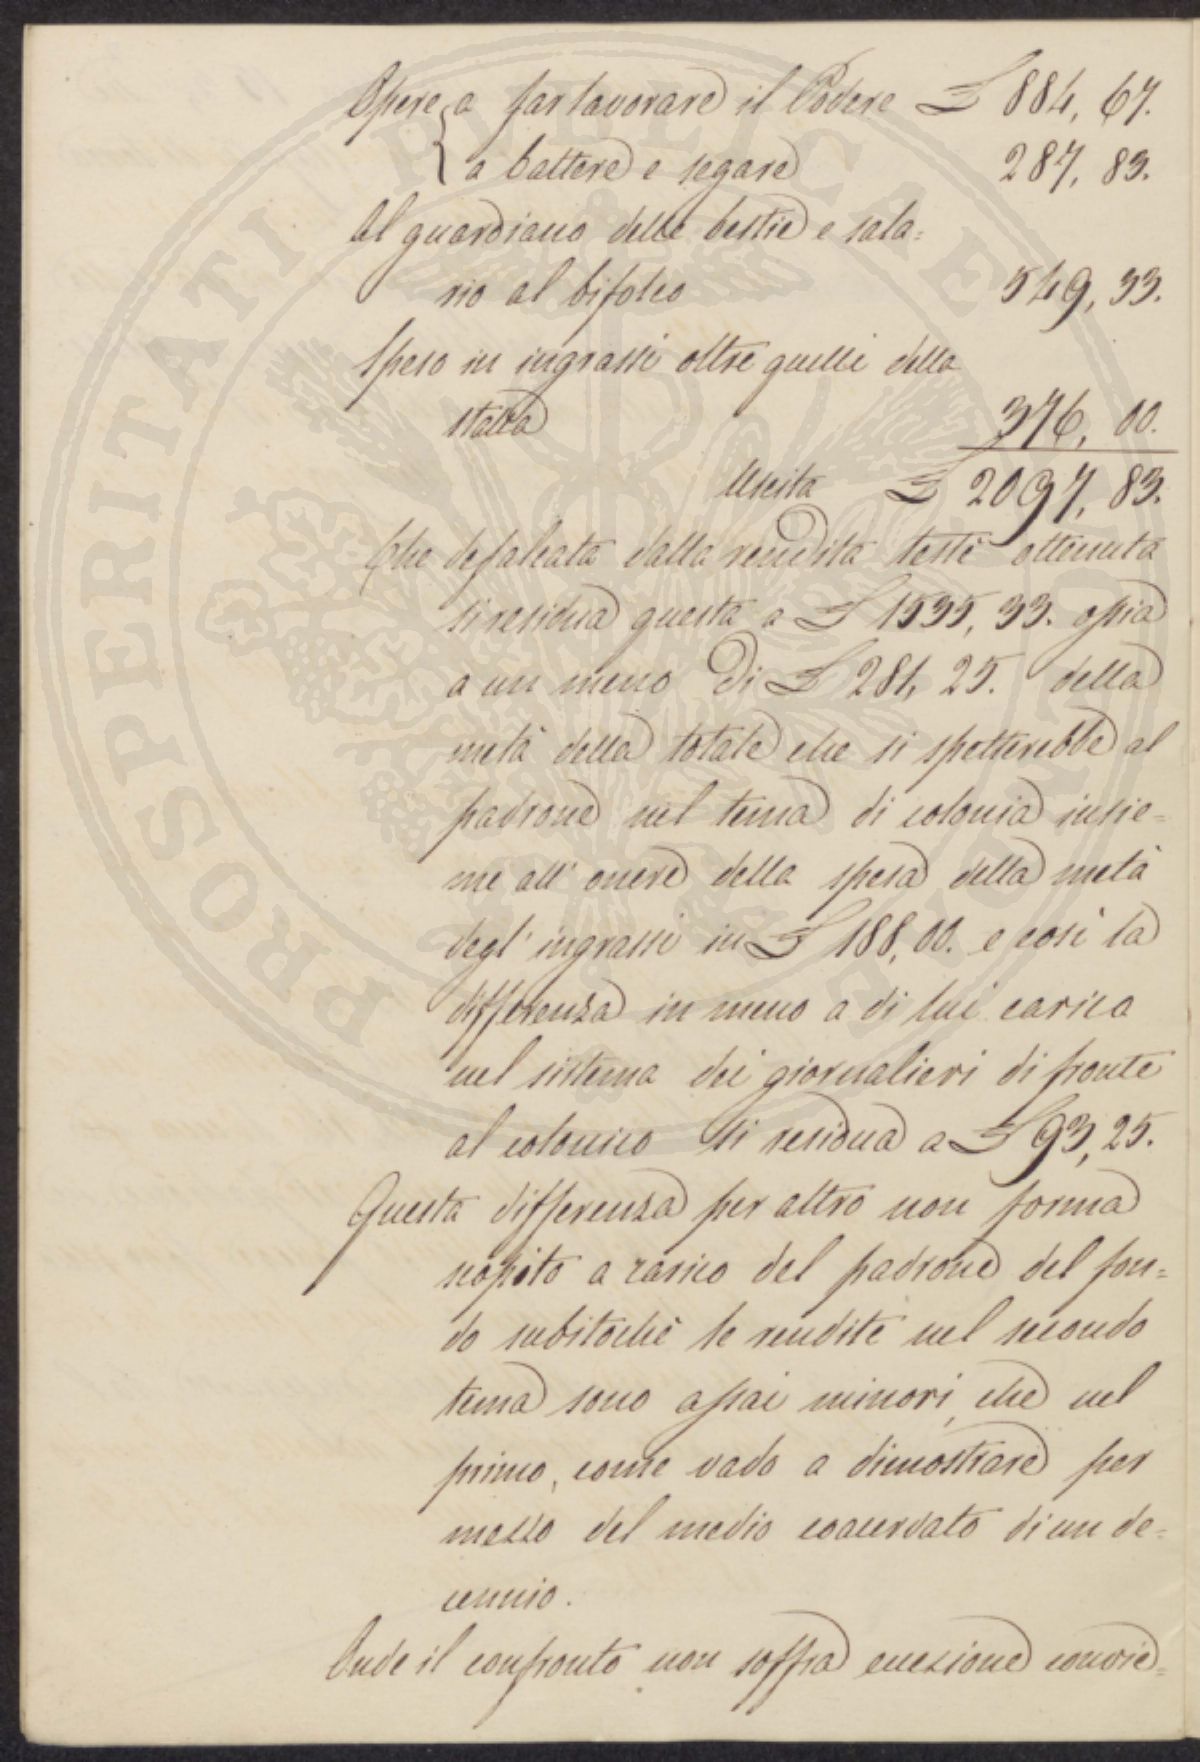 Opere { a far lavorare il Podere £ 884, 67.
{ a battere e segare 287, 83.
Al guardiano delle bestie e sala=
rio al bifolco 549, 33.
Speso in ingrassi oltre quelli della
stalla 376, 00.
Uscita £ 2097, 83.
Che defalcata dalla rendita testè ottenuta
si residua questa a £ 1535, 33. ossia
a un meno di £ 281, 25. della
metà della totale che si spetterebbe al
padrone nel tema di colonia insie=
me all' onere della spesa della metà
degl' ingrassi in £ 188, 00. e così la
differenza in meno a di lui carico
nel sistema dei giornalieri di fronte
al colonico si residua a £ 93, 25.
Questa differenza per altro non forma
scapito a carico del padrone del fon=
do subitochè le rendite nel secondo
tema sono assai minori, che nel
primo, come vado a dimostrare per
mezzo del medio coacervato di un de=
cennio.
Onde il confronto non soffra eccezione convie=
PROSPERITATI PVBLICAE AVGENDAE